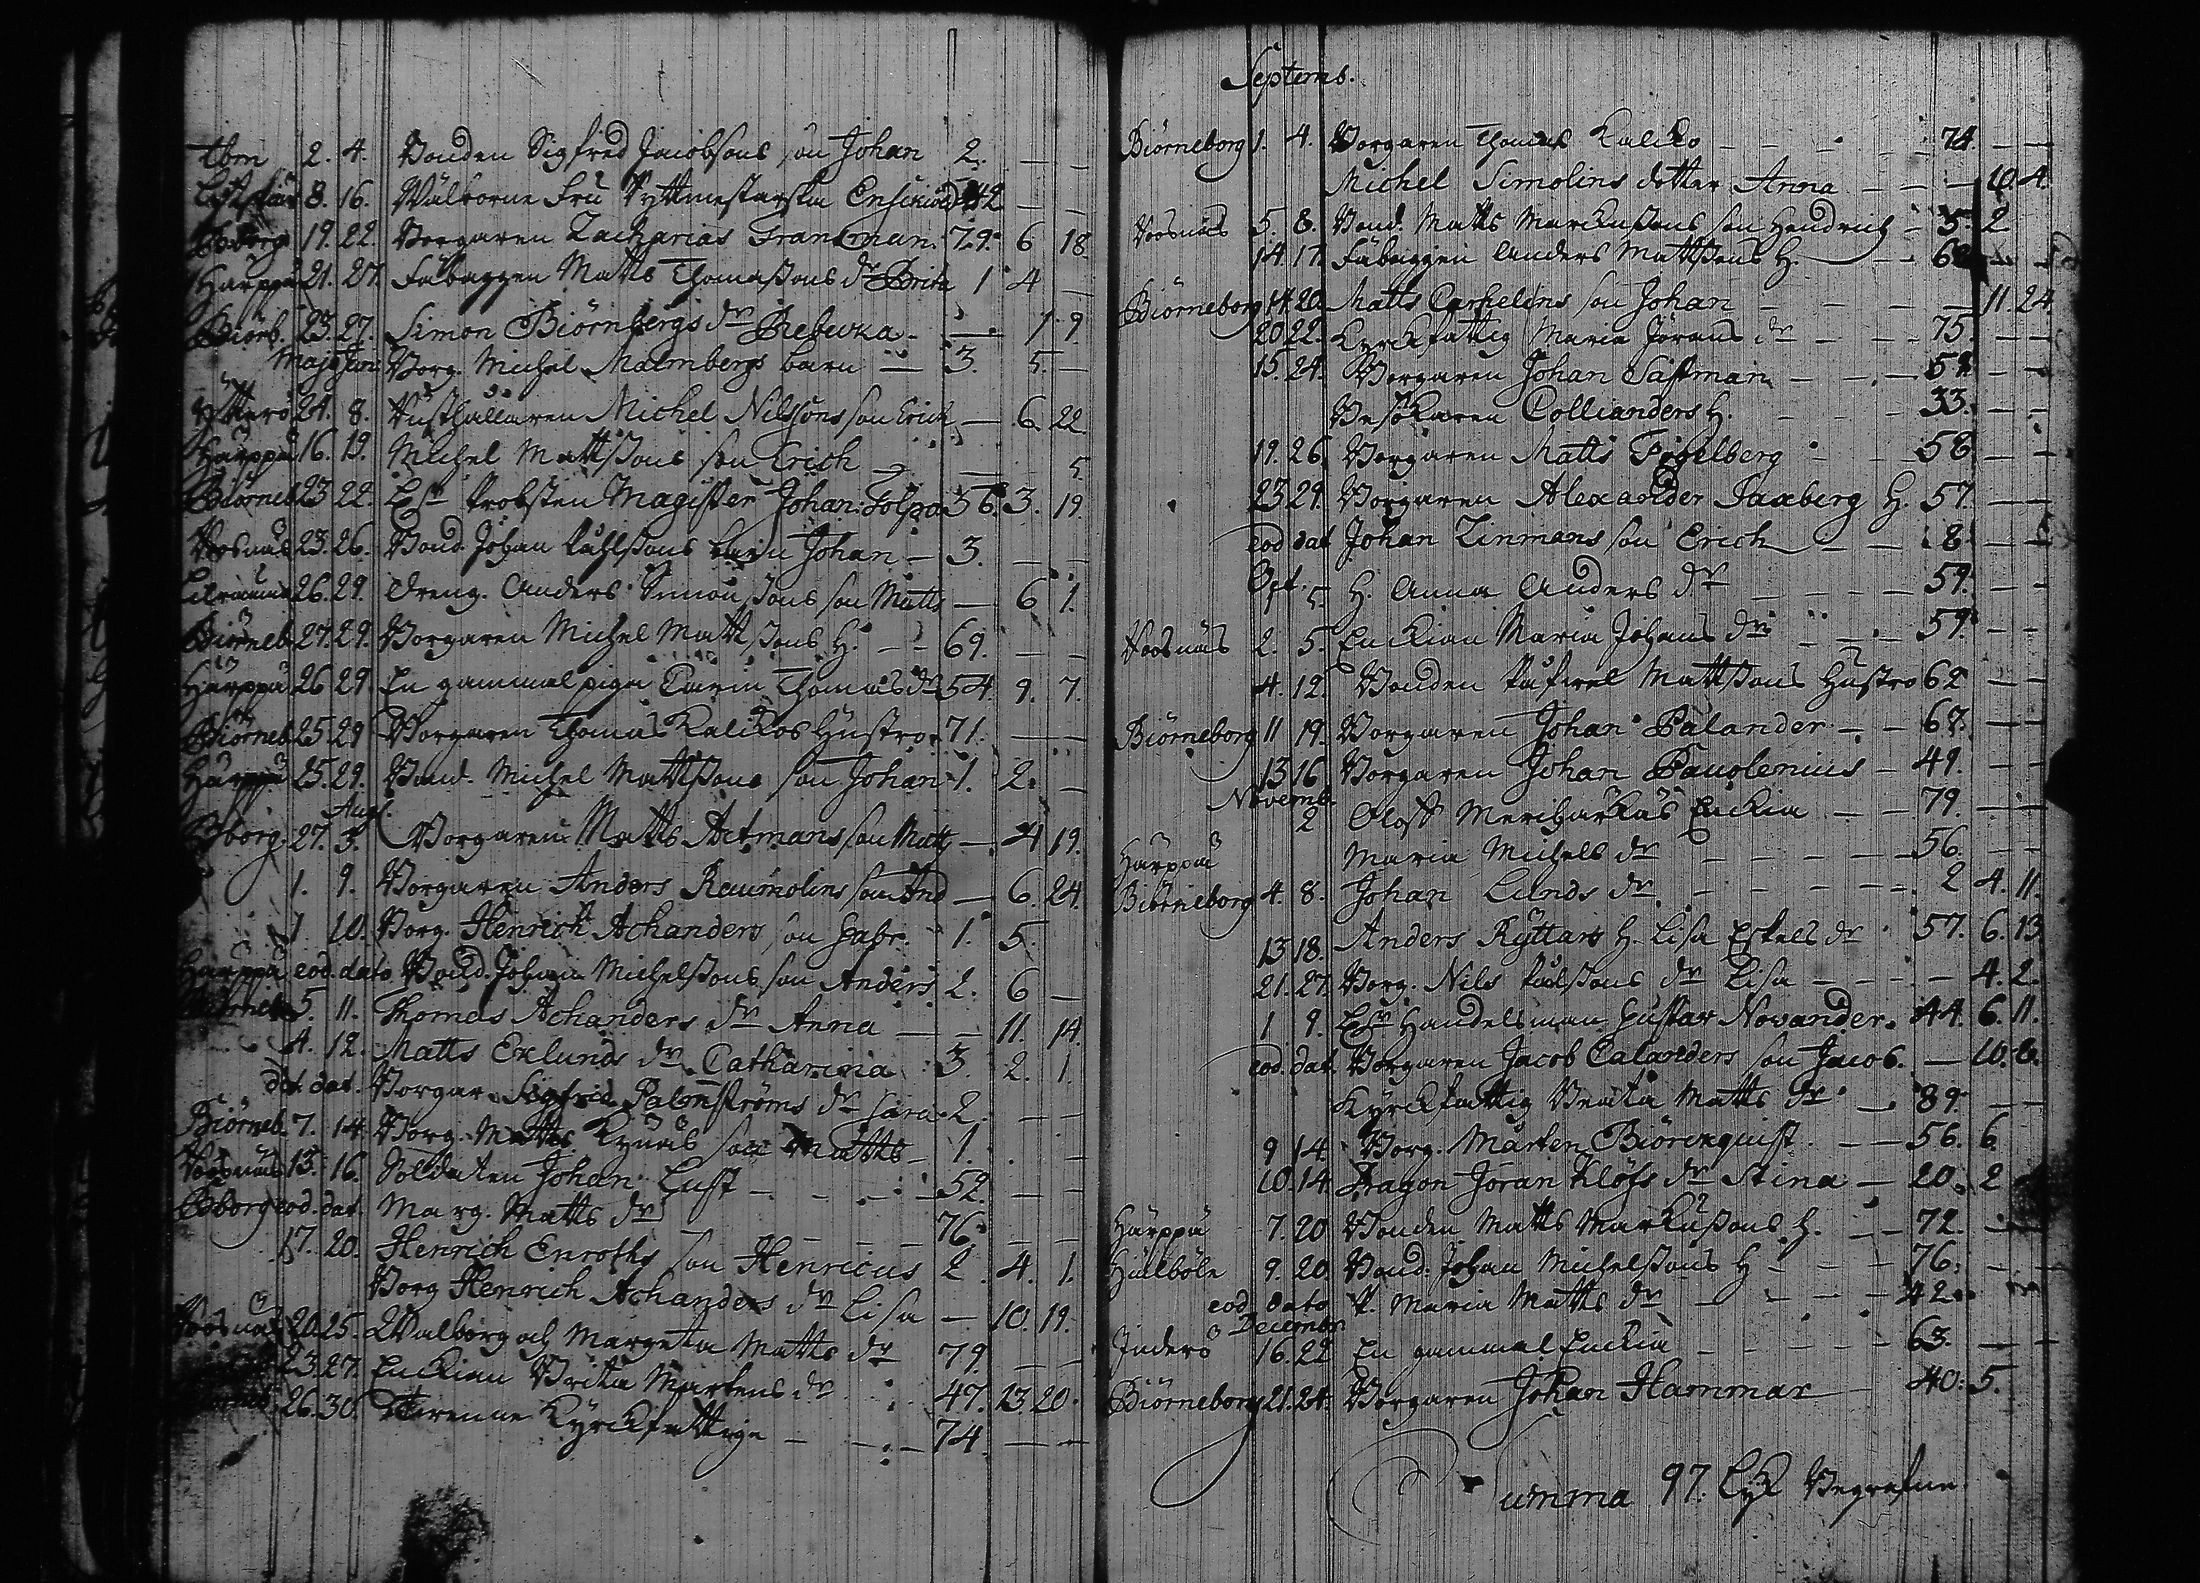 tbm 2. 4. Bonden Sigfred Jacobsons son Johan 2. — —
8. 16. Wälborne Fru Ryttmestarska 42 — —
Bborg 19. 22. Borgaren Zacharias Granrman. 79. 6 18
Harppå 21. 27. Fäbaggen Matts Thomassons dr Brita 1 4 —
Biörb. 23. 27. Simon Biörnbergs dr Rebecka — 1. 9
Maj Jun. Borg. Michel Malmbergs barn — 3. 5. —
Ytterö 21. 8. Rusthållaren Michel Nilssons son Erich — 6. 22.
Harppå 16. 19. Michel Mattssons son Erich — — 5
Biörneb. 23 22. Hr Probsten Magister Johan 56. 3. 19.
Voosnäs 23. 26. Bond. Johan Påhlssons barn Johan — 3. — —
26. 29. Dreng. Anders Simonssons son Matts — 6 1.
Biörneb. 27. 29. Borgaren Michel Mattssons H. — 69. — —
Harppå 26 29. En gammal piga Carin Thomas dr 54. 9. 7.
Biörneb. 25. 29 Borgaren Thomas Kalikos Hustro. 71. — —
Harppå 25. 29. Bond. Michel Mattssons son Johan 1. 2. —
Aug.
Bborg 27. 3. Borgaren Matts Actmans son Matts — 4 19.
1. 9. Borgaren Anders Raumolins son And — 6. 24.
1. 10. Borg. Henrich Achanders son Gabr. 1. 5.
Harppå eod. dato Bond. Johan Michelssons son Anders 2. 6 —
5. 11. Thomas Achanders dr Anna — — 11. 14.
4. 12. Matts Eklunds dr Catharina 3. 2. 1.
dat. Borgar. Sigfrid Palmströms dr Sara 2. — —
Biörneb. 7. 14. Borg. Matts Kynäs son Matts — 1. — —
Voosnäs 13. 16. Soldaten Johan Lust — 52. — —
Bborg eod. dat. Marg. Matts dr — 76. — —
17. 20. Henrich Enroths son Henricus 2. 4. 1.
Borg Henrich Achanders dr Lisa — 10. 19.
Voosnäs 20. 25. Walborg och Margeta Matts dr 79. — —
23. 27. Enckian Brita Mårtens dr 47. 13. 20.
26. 30. Kyrckfattige — 74. — —
Septemb.
Biörneborg 1. 4. Borgaren Thomas Kaliko — 74. — —
Michel Simolins dotter Anna — — 10. 4.
Voosnäs 5. 8. Bond. Matts Marckussons son Hendrich — 5. 2.
14. 17. Fäbaggen Anders Mattssons H. — —
Biörneborg 14. 20. Matts Carhelins son Johan — 11. 24.
20 22. Kyrckfattig Maria Jörans dr — 75. — —
15. 24. Borgaren Johan Saftman — — —
Besökaren Collianders H. — 33. — —
19. 26. Borgaren Matts Fogelberg — 58 — —
23 29. Borgaren Alexander Saxberg H. 57. — —
eod dat Johan Zinmans son Erich — 8. — —
Oct. 5. H. Anna Anders dr — 59. — —
Voosnäs 2. 5. Enckian Maria Johans dr — 59. — —
4. 12. Bonden Mattssons Hustro 62 — —
Biörneborg 11 19. Borgaren Johan Palander — 67. — —
13 16 Borgaren Johan Paulenius — 49. — —
Novemb.
2 Oloff Enckia — 79. — —
Harppå Maria Michels dr — 56. — —
Biörneborg 4. 8. Johan Lunds dr — 2 4. 11.
13 18. Anders Ryttars H. Lisa Eskels dr 57. 6. 13
21. 27. Borg. Nils Pålssons dr Lisa — — 4. 2.
1 9. Hr Handelsman Gustav Novander. 44. 6. 11.
eod. dat. Borgaren Jacob Calanders son Jacob. — 10. 6.
Kyrckfattig Beata Matts dr — 89. — —
9 14. Borg. Mårten Biörckquist. — 56. 6.
10. 14 Dragon Jöran Klöfs dr Stina — 20. 2
Harppå 7. 20 Bonden Matts Markussons H. — 72. — —
Hälböle 9. 20 Bond. Johan Michelssons H — 76. — —
eod. dato P. Maria Matts dr — 42. —
Decembr.
Inderö 16. 22 En gammal Enckia — 63. — —
Biörneborg 21. 24. Borgaren Johan Hammar — 40. 5.
Summa 97. Begrafne.